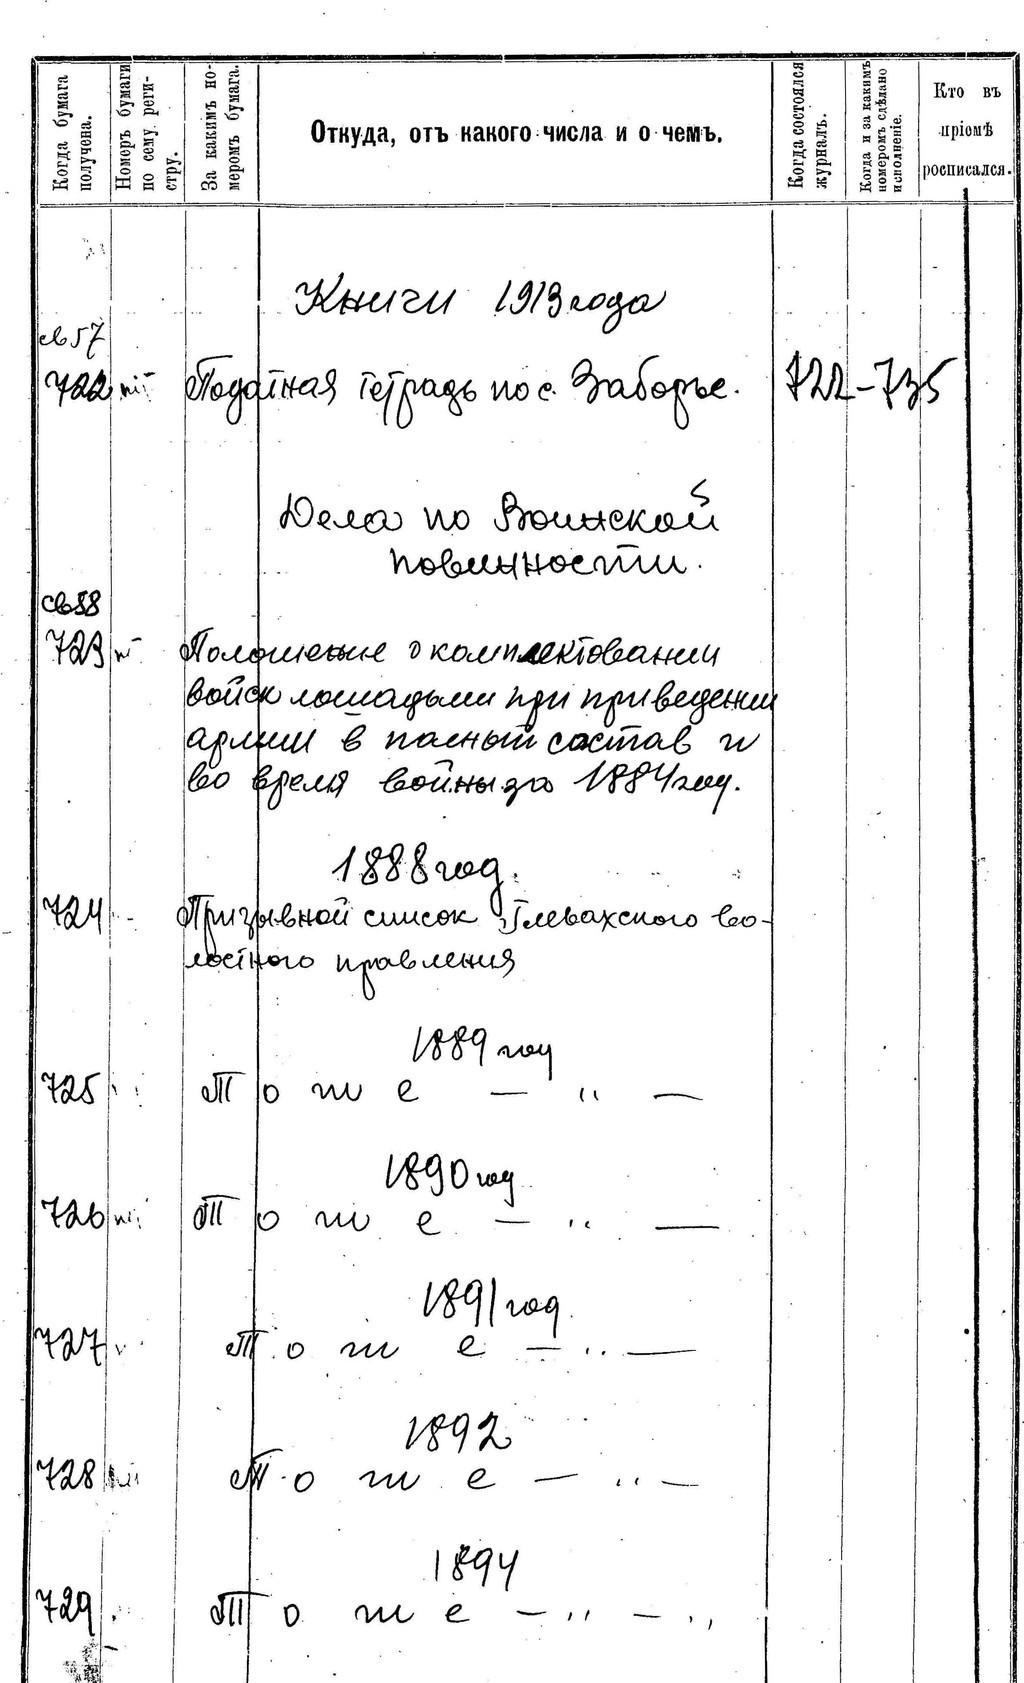 Когда бумага получена.
Номеръ бумаги по сему. реги-стру.
За какимъ но-меромъ бумага.
Откуда, отъ какого числа и о чемъ.
Когда состоялся журналъ.
Когда и за какимъ номеромъ сдѣлано исполненіе.
Кто въ пріомѣ росписался.
Книги 1913 года
св 57
722 Податная тетрадь по с. Заборье. 722-735
Дела по Воинской
повинности.
св 58
723 Положение о комплектовании
войск лошадьми при приведении
армии в полный состав и
во время войны за 1884 год.
1888 год.
724 Призывной список Глевахского во-
лостного правления
1889 год
725 Т о ж е — " —
1890 год
726 Т о ж е — " —
1891 год
727 Т о ж е — " —
1892
728 Т о ж е — " —
1894
729 Т о ж е — " — "